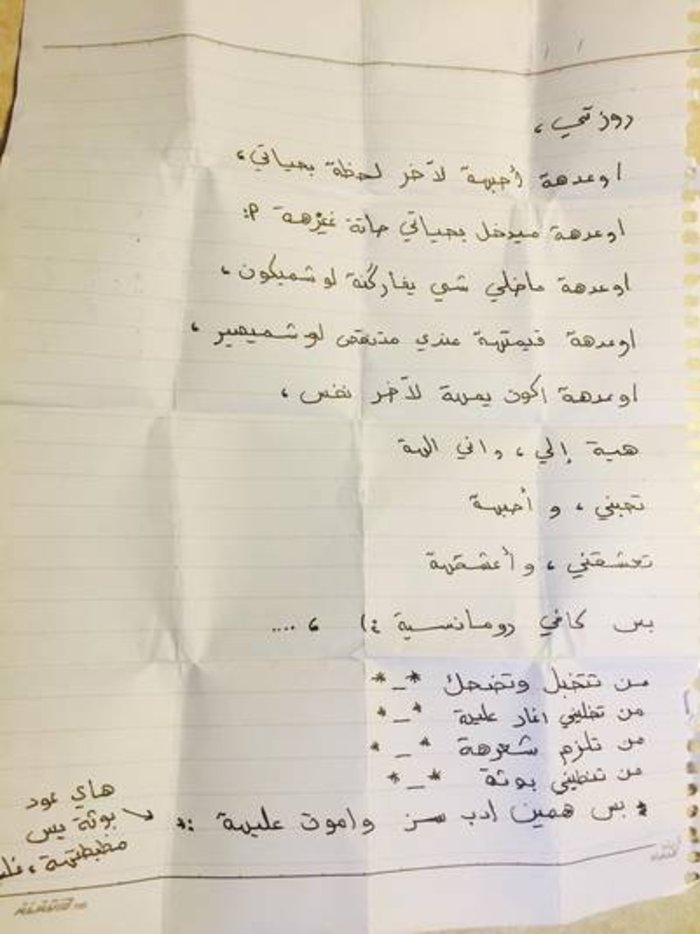 روزتي،
اوعدهة أحبهة لآخر لحظة بحياتي،
اوعدهة ميدخل بحياتي حاتة غيرهة :P
اوعدهة ماخلي شي يفارگنة لو شميكون،
اوعدهة قيمتهة عندي متنقص لو شميصير،
اوعدهة اكون يمهة لآخر نفس،
هية إلي، واني الهة
تحبني، و أحبهة
تعشقني، و أعشقهة
بس كافي رومانسية :) ، ....
من تتخبل وتضحك *_*
من تخليني اغار عليهة *_*
من تلزم شعرهة *_*
من تنطيني بوثة *_*
* بس همين ادب سز واموت عليهة :*
هاي عود
بوثة بس
مطبطتهة،